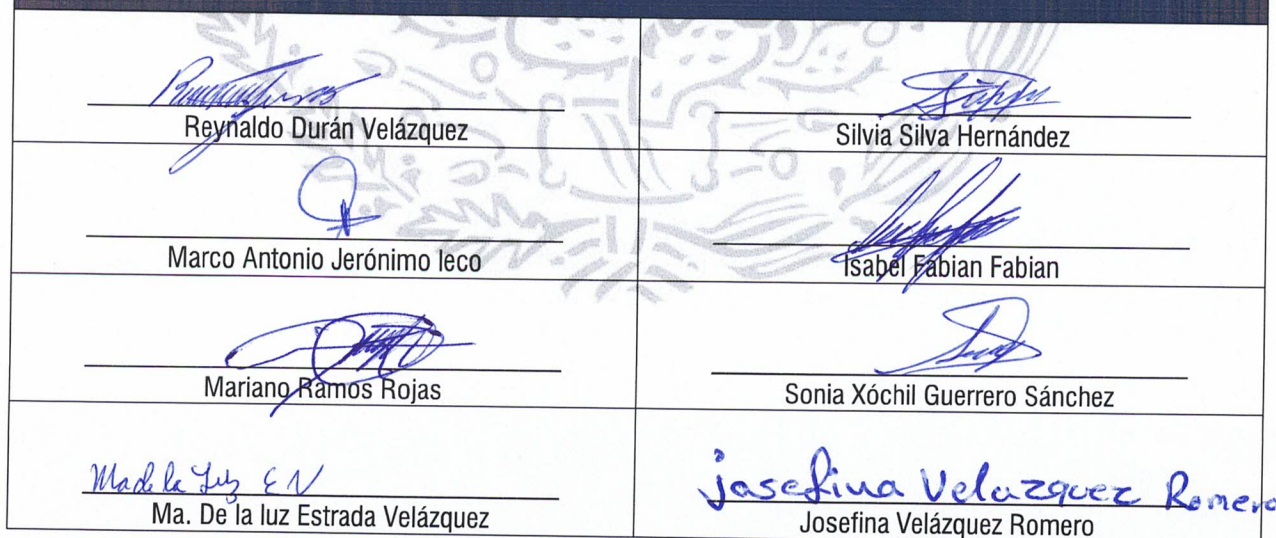 Reynaldo Durán Velázquez
Silvia Silva Hernández
Marco Antonio Jerónimo Ieco
Isabel Fabian Fabian
Mariano Ramos Rojas
Sonia Xóchil Guerrero Sánchez
Ma de la Luz E V
Ma. De la luz Estrada Velázquez
josefina Velazquez Romero
Josefina Velázquez Romero